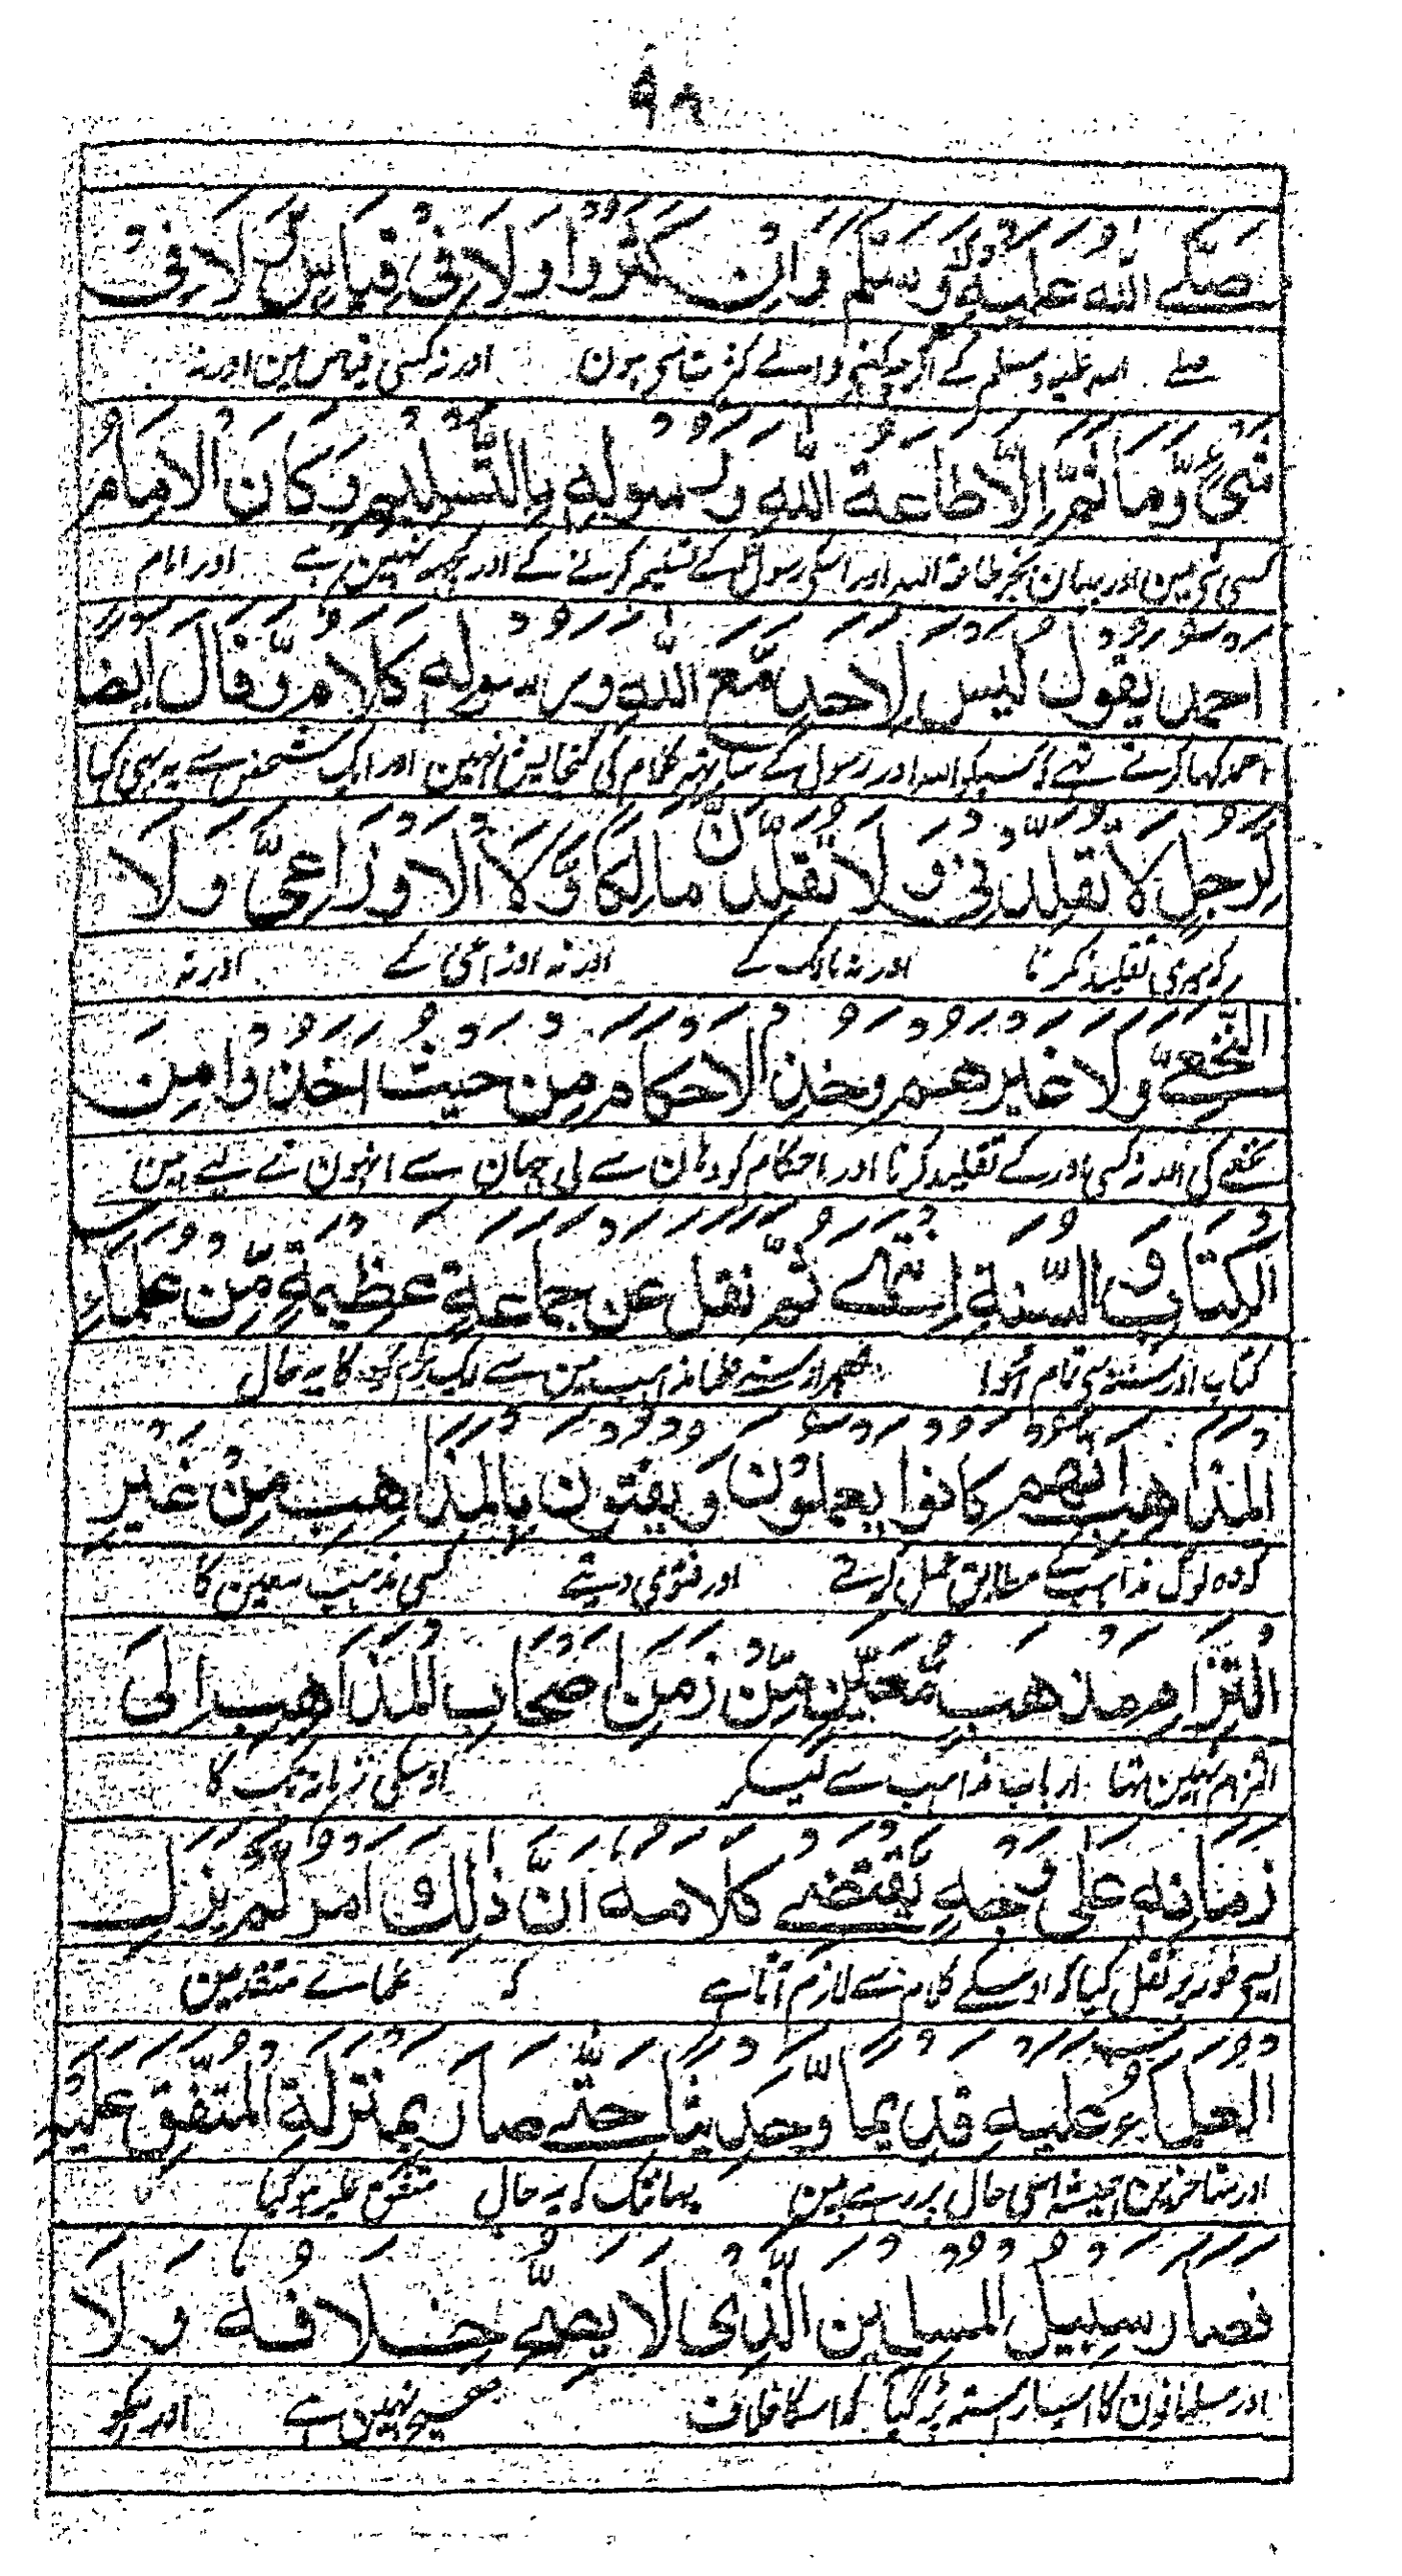 ۹۸
صَلَّى اللهُ عَلَيْهِ وَسَلَّمَ وَاِنْ كَثُرُوْا وَلَا فِيْ قِيَاسٍ وَّلَا فِيْ
صلے اللہ علیہ وسلم کے اگرچہ کہنے والے کثرت سے ہی ہون اور نہ کسی قیاس مین اور نہ
شَيْءٍ وَّمَا ثَمَّ اِلَّا طَاعَةُ اللهِ وَرَسُوْلِهِ بِالتَّسْلِيْمِ وَكَانَ الْاِمَامُ
کسی شی مین اور یہان بجز طاعۃ اللہ اور اسکی رسول کے تسلیم کرنے کے اور کچھ نہین ہے اور امام
اَحْمَدُ يَقُوْلُ لَيْسَ لِاَحَدٍ مَّعَ اللهِ وَرَسُوْلِهٖ كَلَامٌ وَّقَالَ اَيْضًا
احمد کہا کرتے تہے کہ کسیکو اللہ اور رسول کے ساتہہ کلام کی گنجایش نہین اور ایک شخص سے یہ بہی کہا
لِرَجُلٍ لَا تُقَلِّدْنِيْ وَلَا تُقَلِّدَنَّ مَالِكًا وَّلَا الْاَوْزَاعِيَّ وَلَا
کہ میری تقلید نکرنا اور نہ مالک کے اور نہ اوزاعی کے اور نہ
النَّخَعِيَّ وَلَا غَيْرَهُمْ وَخُذِ الْاَحْكَامَ مِنْ حَيْثُ اَخَذُوْا مِنَ
نخعے کی اور نہ کسی اور کے تقلید کرنا اور احکام کو وہان سے لی جہان سے انہون نے لیے ہین
الْكِتَابِ وَالسُّنَّةِ اِنْتَهٰى ثُمَّ نَقَلَ عَنْ جَمَاعَةٍ عَظِيْمَةٍ مِّنْ عُلَمَاءِ
کتاب اور سنۃ سی تمام ہوا پھر اوسنے علما مذاہب مین سے ایک بڑے کا یہ حال
الْمَذَاهِبِ اَنَّهُمْ كَانُوْا يَعْمَلُوْنَ وَيُفْتُوْنَ بِالْمَذَاهِبِ مِنْ غَيْرِ
کہ وہ لوگ مذاہب کے مطابق عمل کرتے اور فتوی دیتے کسی مذہب معین کا
الْتِزَامِ مَذْهَبٍ مُّعَيَّنٍ مِّنْ زَمَنِ اَصْحَابِ الْمَذَاهِبِ اِلٰى
التزام نہین تہا ارباب مذاہب سے لیکر اوسکی زمانہ تک کا
زَمَانِهٖ عَلٰى وَجْهٍ يَّقْتَضِيْ كَلَامُهٗ اَنَّ ذٰلِكَ اَمْرٌ لَّمْ يَزَلِ
ایسی طور پر نقل کیا کہ اوسکے کلام سے لازم آتا ہے کہ علماے متقدمین
الْعُلَمَاءُ عَلَيْهِ قَدِيْمًا وَّحَدِيْثًا حَتّٰى صَارَ بِمَنْزِلَةِ الْمُتَّفَقِ عَلَيْهِ
اور متاخرین ہمیشہ اسی حال پر رہے ہین یہانتک کہ یہ حال متفق علیہ ہو گیا
فَصَارَ سَبِيْلَ الْمُسْلِمِيْنَ الَّذِيْ لَا يَصِحُّ خِلَافُهٗ وَلَا
اور مسلمانون کا ایسا رستہ پڑ گیا کہ اسکا خلاف صحیح نہین ہے اور ہمکو